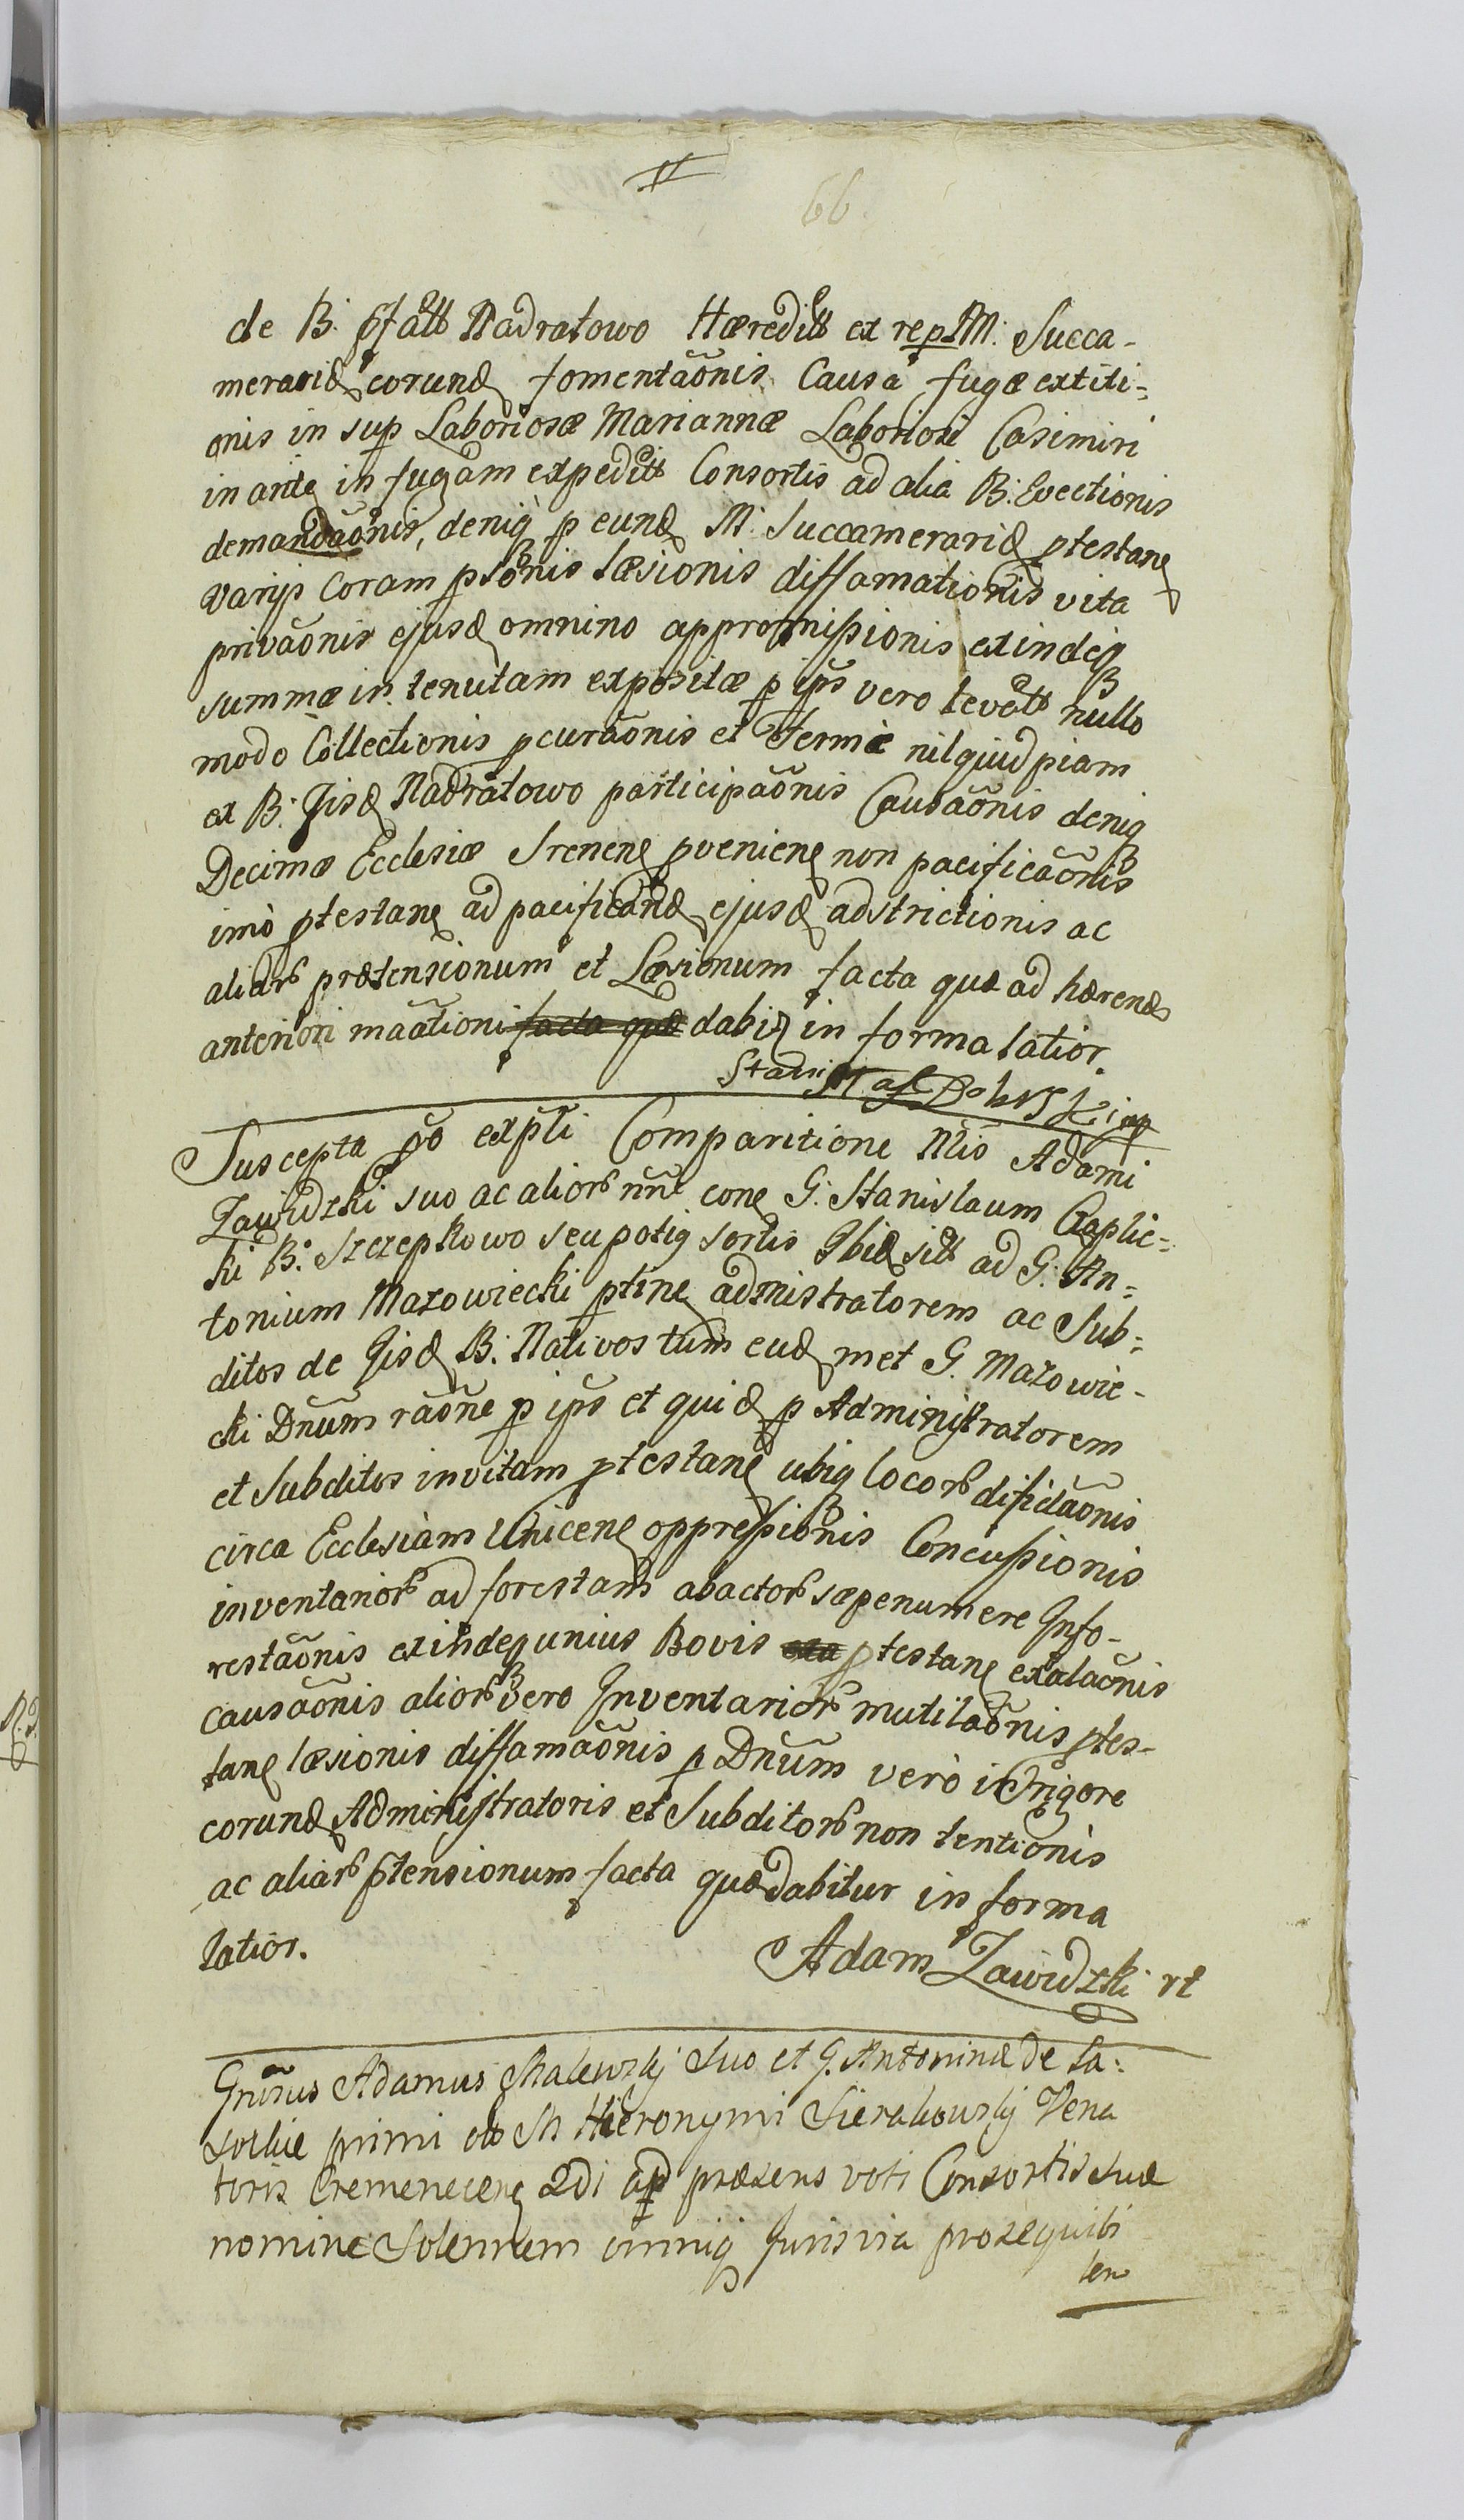 66.
de B. pfatt Nadratowo Hæreditt ex rep M: Succa-
merarid eorund fomentaõnis Causa fugæ extiti=
onis in sup Laboriosæ Mariannæ Laboriosi Casimiri
in ante in fugam expeditt Consortis ad alia B: Evectionis
demandaõnis, deniq p eund M: Succamerarid ptestane
varijs Coram psonis læsionis diffamationis vita
privaõnis ejusd omnino appromissionis exindeq
summæ in tenutam expositæ p ips vero levatt nullo
modo Collectionis pcuraõnis et Fermè nilquidpiam
ex B: Iisd Nadratowo participaõnis Causaõnis deniq
Decimæ Ecclesiæ Srenene proveniene non pacificaõnis
imò ptestane ad pacificand ejusd adstrictionis ac
aliar prætensionum et Læsionum facta quæ ad hærend
anteriori maãtioni facta quæ dabit in forma latior.
Suscepta po expti Comparitione Nlis Adami
Zawidzki suo ac alior nñe cone G: Stanislaum Czaplic=
ki B: Szczepkowo seu potiq sortis Ibid sitt ad G: An=
tonium Mazowiecki ptine admistratorem ac Sub=
ditos de Iisd B: Nativos tum eud met G. Mazowie-
cki Dnum raõne p ips et quid p Administratorem
et Subditos invitam ptestane ubiq locor dificlaõnis
circa Ecclesiam Unicene oppressionis Concussionis
inventarior ad forestam abactor sæpenumere Info-
restaõnis exindeq unius Bovis ptestane exalaõnis
causaõnis alior vero Inventarior mutilaõnis ptes-
tane læsionis diffamaõnis p Dnum verò in rigore
eorund Administratoris et Subditor non tentionis
ac aliar ptensionum facta quæ dabitur in forma
latior.
Adam Zawidzki
Gnrosus Adamus Malewskj Suo et G. Antoninæ de La=
primi M Hieronymi Sierakowskj Vena
toris Cremenecene præsens voti Consortis suæ
nomine Solennem omniq Juris via prosequibi
len